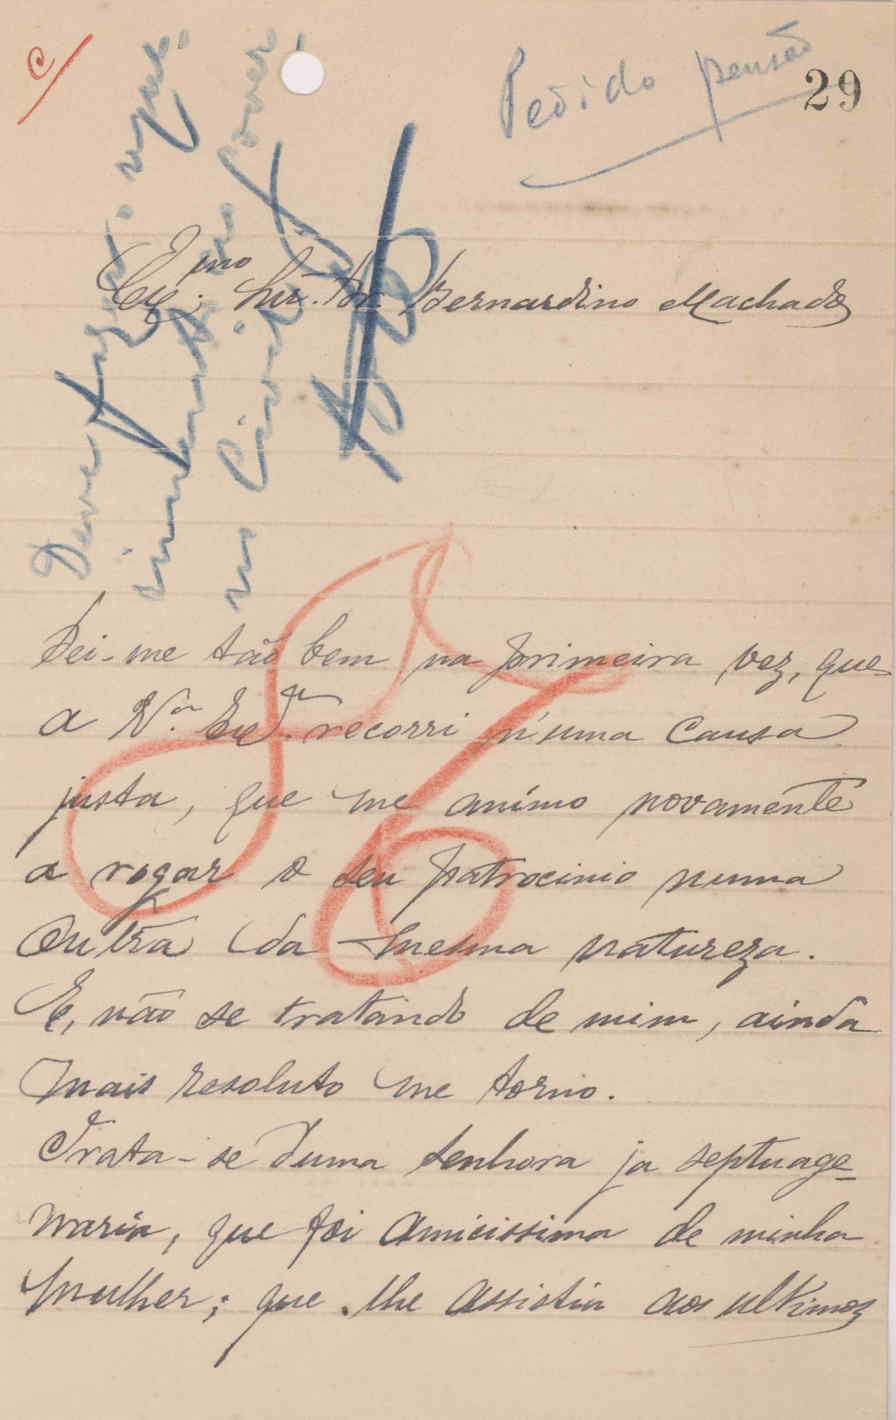 Pedido pensão
29
Deve fazer o reque-
rimento ao Gover
no Civil
Exmo. Snr. Dr. Bernardino Machado
Dei-me tão bem na primeira vez, que
a V.ª Exª. recorri n'uma causa
justa, que me animo novamente
a rogar o seu patrocinio numa
outra da mesma natureza.
E, não se tratando de mim, ainda
mais resoluto me torno.
Trata-se duma senhora ja septuage-
naria, que foi amicissima de minha
mulher; que lhe assistiu aos ultimos